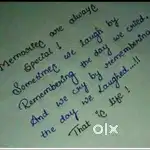 Memories are always
Special !
Sometimes we laugh by
Remembering the day we cried,
And we cry by remembering
the day we laughed...!!
That is life !
OLX